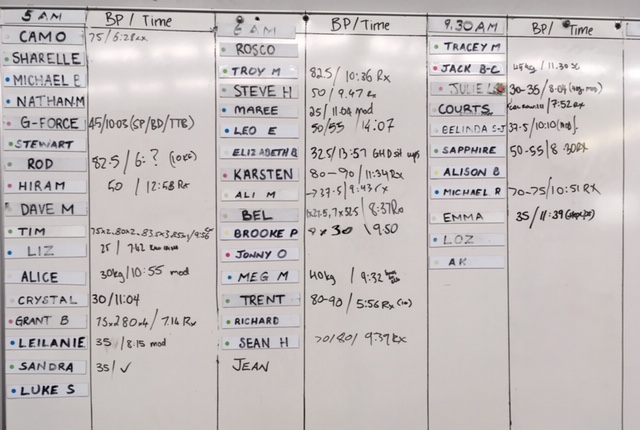 5 AM BP / Time
CAMO 75/6:28rx
SHARELLE
MICHAEL B
NATHAN M
G-FORCE 45/10:03 (SP/BD/TTB)
STEWART
ROD 82.5 / 6:?
HIRAM 50 / 12:58 Rx
DAVE M
TIM
LIZ 25 / 7:42
ALICE 30kg/10:55 mod
CRYSTAL 30/11:04
GRANT B 75x2.80x4/7:14 Rx
LEILANIE 35 / 8:15 mod
SANDRA 35/✓
LUKE S
6 AM BP/Time
ROSCO
TROY M 82.5 / 10:26 Rx
STEVE H 50 / 9.47 Rx
MAREE 25/11.04 mod
LEO E 50/55 / 14:07
ELIZABETH B 32.5/13:57 GHD sit ups
KARSTEN 80-90/11:34 Rx
ALI M
BEL 7x32.5 / 8:37 Rx
BROOKE P 30 / 9:50
JONNY O
MEG M 40kg / 9:32
TRENT 80-90 / 5:56 Rx
RICHARD
SEAN H 70/80/ 9:37 Rx
JEAN
9.30 AM BP/ Time
TRACEY M
JACK B-C 45kg / 11.30
JULIE L 30-35/8:04
COURTS 7:52 rx
BELINDA S-J 37.5/10:10 (mod)
SAPPHIRE 50-55/8:30 RX
ALISON B
MICHAEL R 70-75/10:51 RX
EMMA 35 / 11:39
LOZ
AK